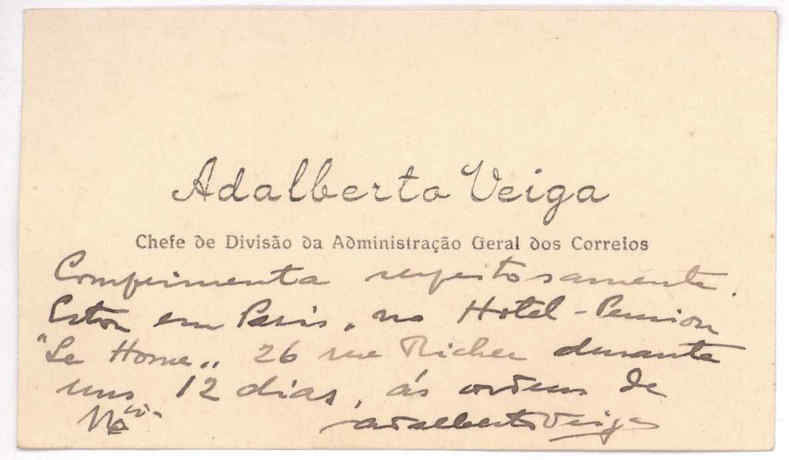 Adalberto Veiga
Chefe de Divisão da Administração Geral dos Correios
Comprimenta respeitosamente.
Estou em Paris, no Hotel-Pension
"Le Home„ 26 rue Richer durante
uns 12 dias, ás ordens de
Adalberto Veiga